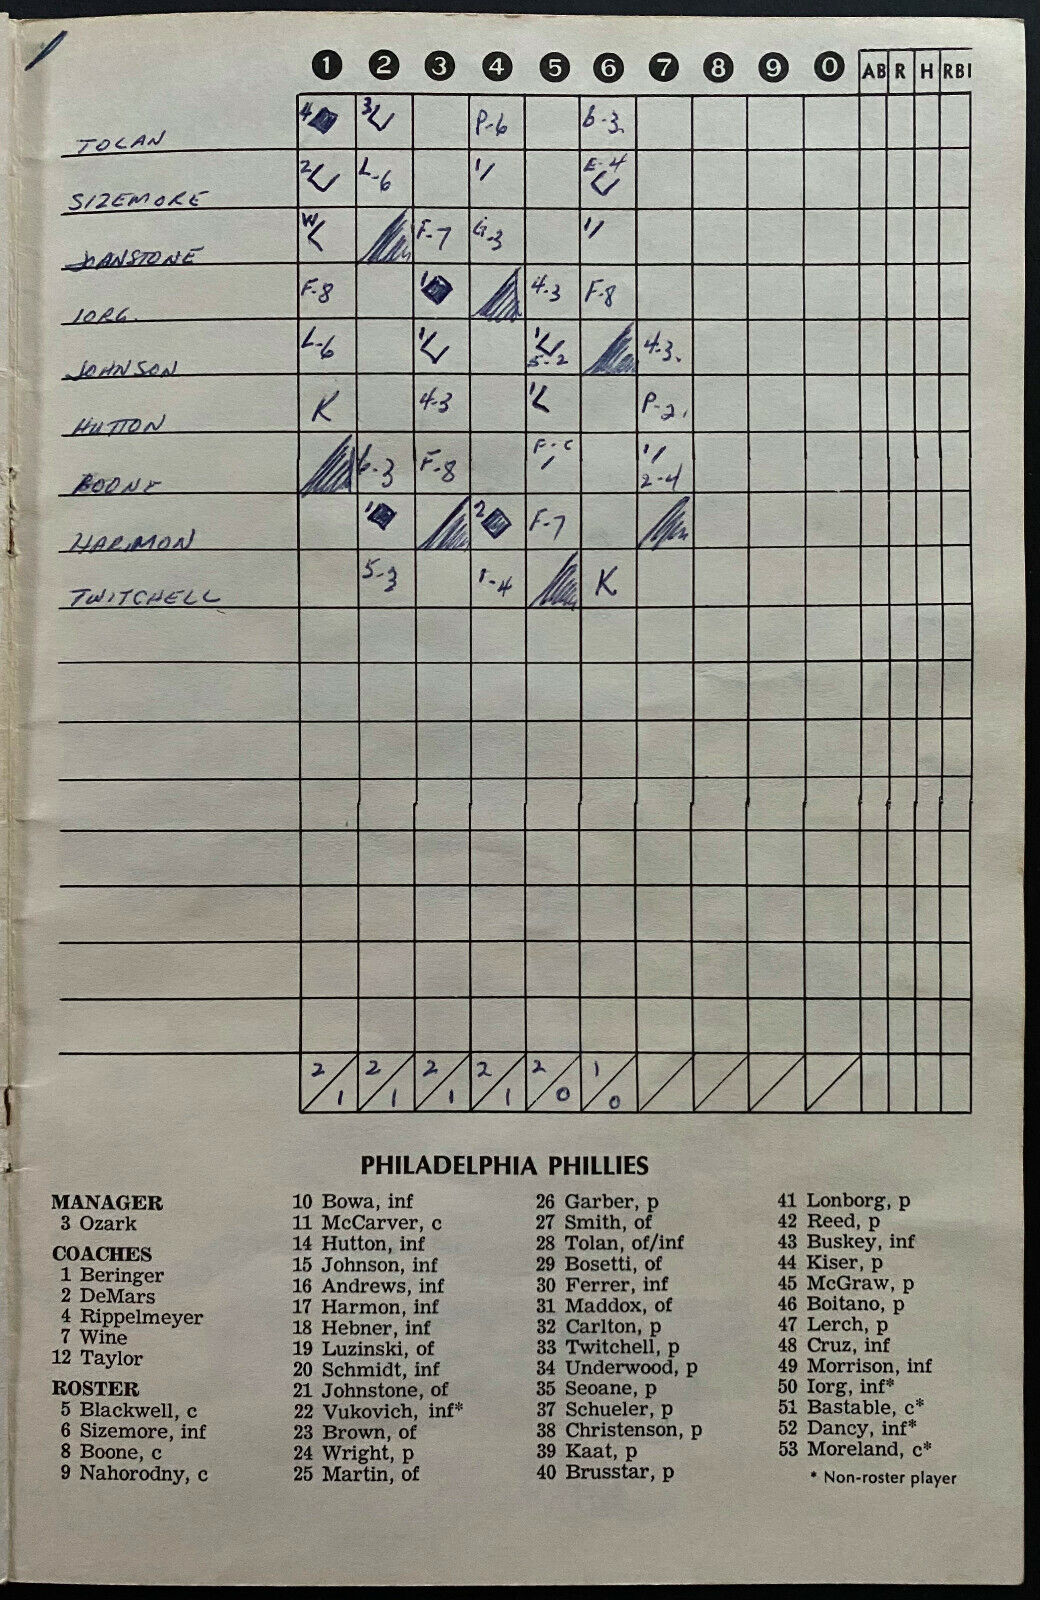 1 2 3 4 5 6 7 8 9 0 AB R H RBI
TOLAN 4 3 P-6 6-3
SIZEMORE 2 L-6 1/ E-4
JOHNSTONE W F-7 G-3 1/
IORG F-8 1 4-3 F-8
JOHNSON L-6 1/ 1/ 5-2 4-3
HUTTON K 4-3 1/ P-2
BOONE 6-3 F-8 1/ 2-4
HARMON 1 2 F-7
TWITCHELL 5-3 K
2/1 2/1 2/1 2/1 2/0 1/0
PHILADELPHIA PHILLIES
MANAGER
3 Ozark
COACHES
1 Beringer
2 DeMars
4 Rippelmeyer
7 Wine
12 Taylor
ROSTER
5 Blackwell, c
6 Sizemore, inf
8 Boone, c
9 Nahorodny, c
10 Bowa, inf
11 McCarver, c
14 Hutton, inf
15 Johnson, inf
16 Andrews, inf
17 Harmon, inf
18 Hebner, inf
19 Luzinski, of
20 Schmidt, inf
21 Johnstone, of
22 Vukovich, inf*
23 Brown, of
24 Wright, p
25 Martin, of
26 Garber, p
27 Smith, of
28 Tolan, of/inf
29 Bosetti, of
30 Ferrer, inf
31 Maddox, of
32 Carlton, p
33 Twitchell, p
34 Underwood, p
35 Seoane, p
37 Schueler, p
38 Christenson, p
39 Kaat, p
40 Brusstar, p
41 Lonborg, p
42 Reed, p
43 Buskey, inf
44 Kiser, p
45 McGraw, p
46 Boitano, p
47 Lerch, p
48 Cruz, inf
49 Morrison, inf
50 Iorg, inf*
51 Bastable, c*
52 Dancy, inf*
53 Moreland, c*
* Non-roster player